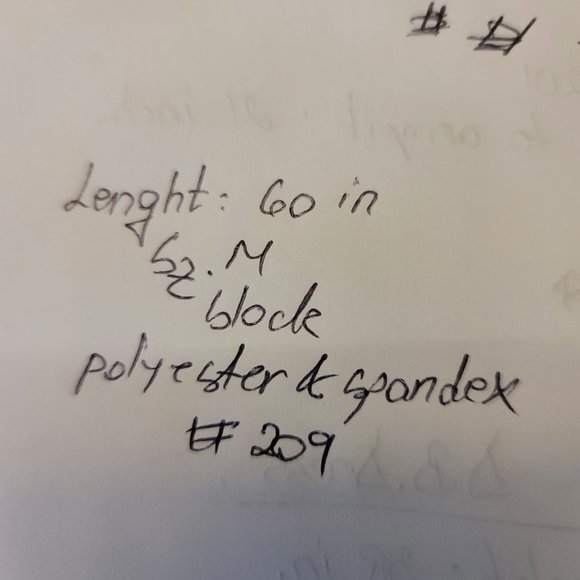 # #
Lenght: 60 in
Sz. M
block
polyester & spandex
# 209